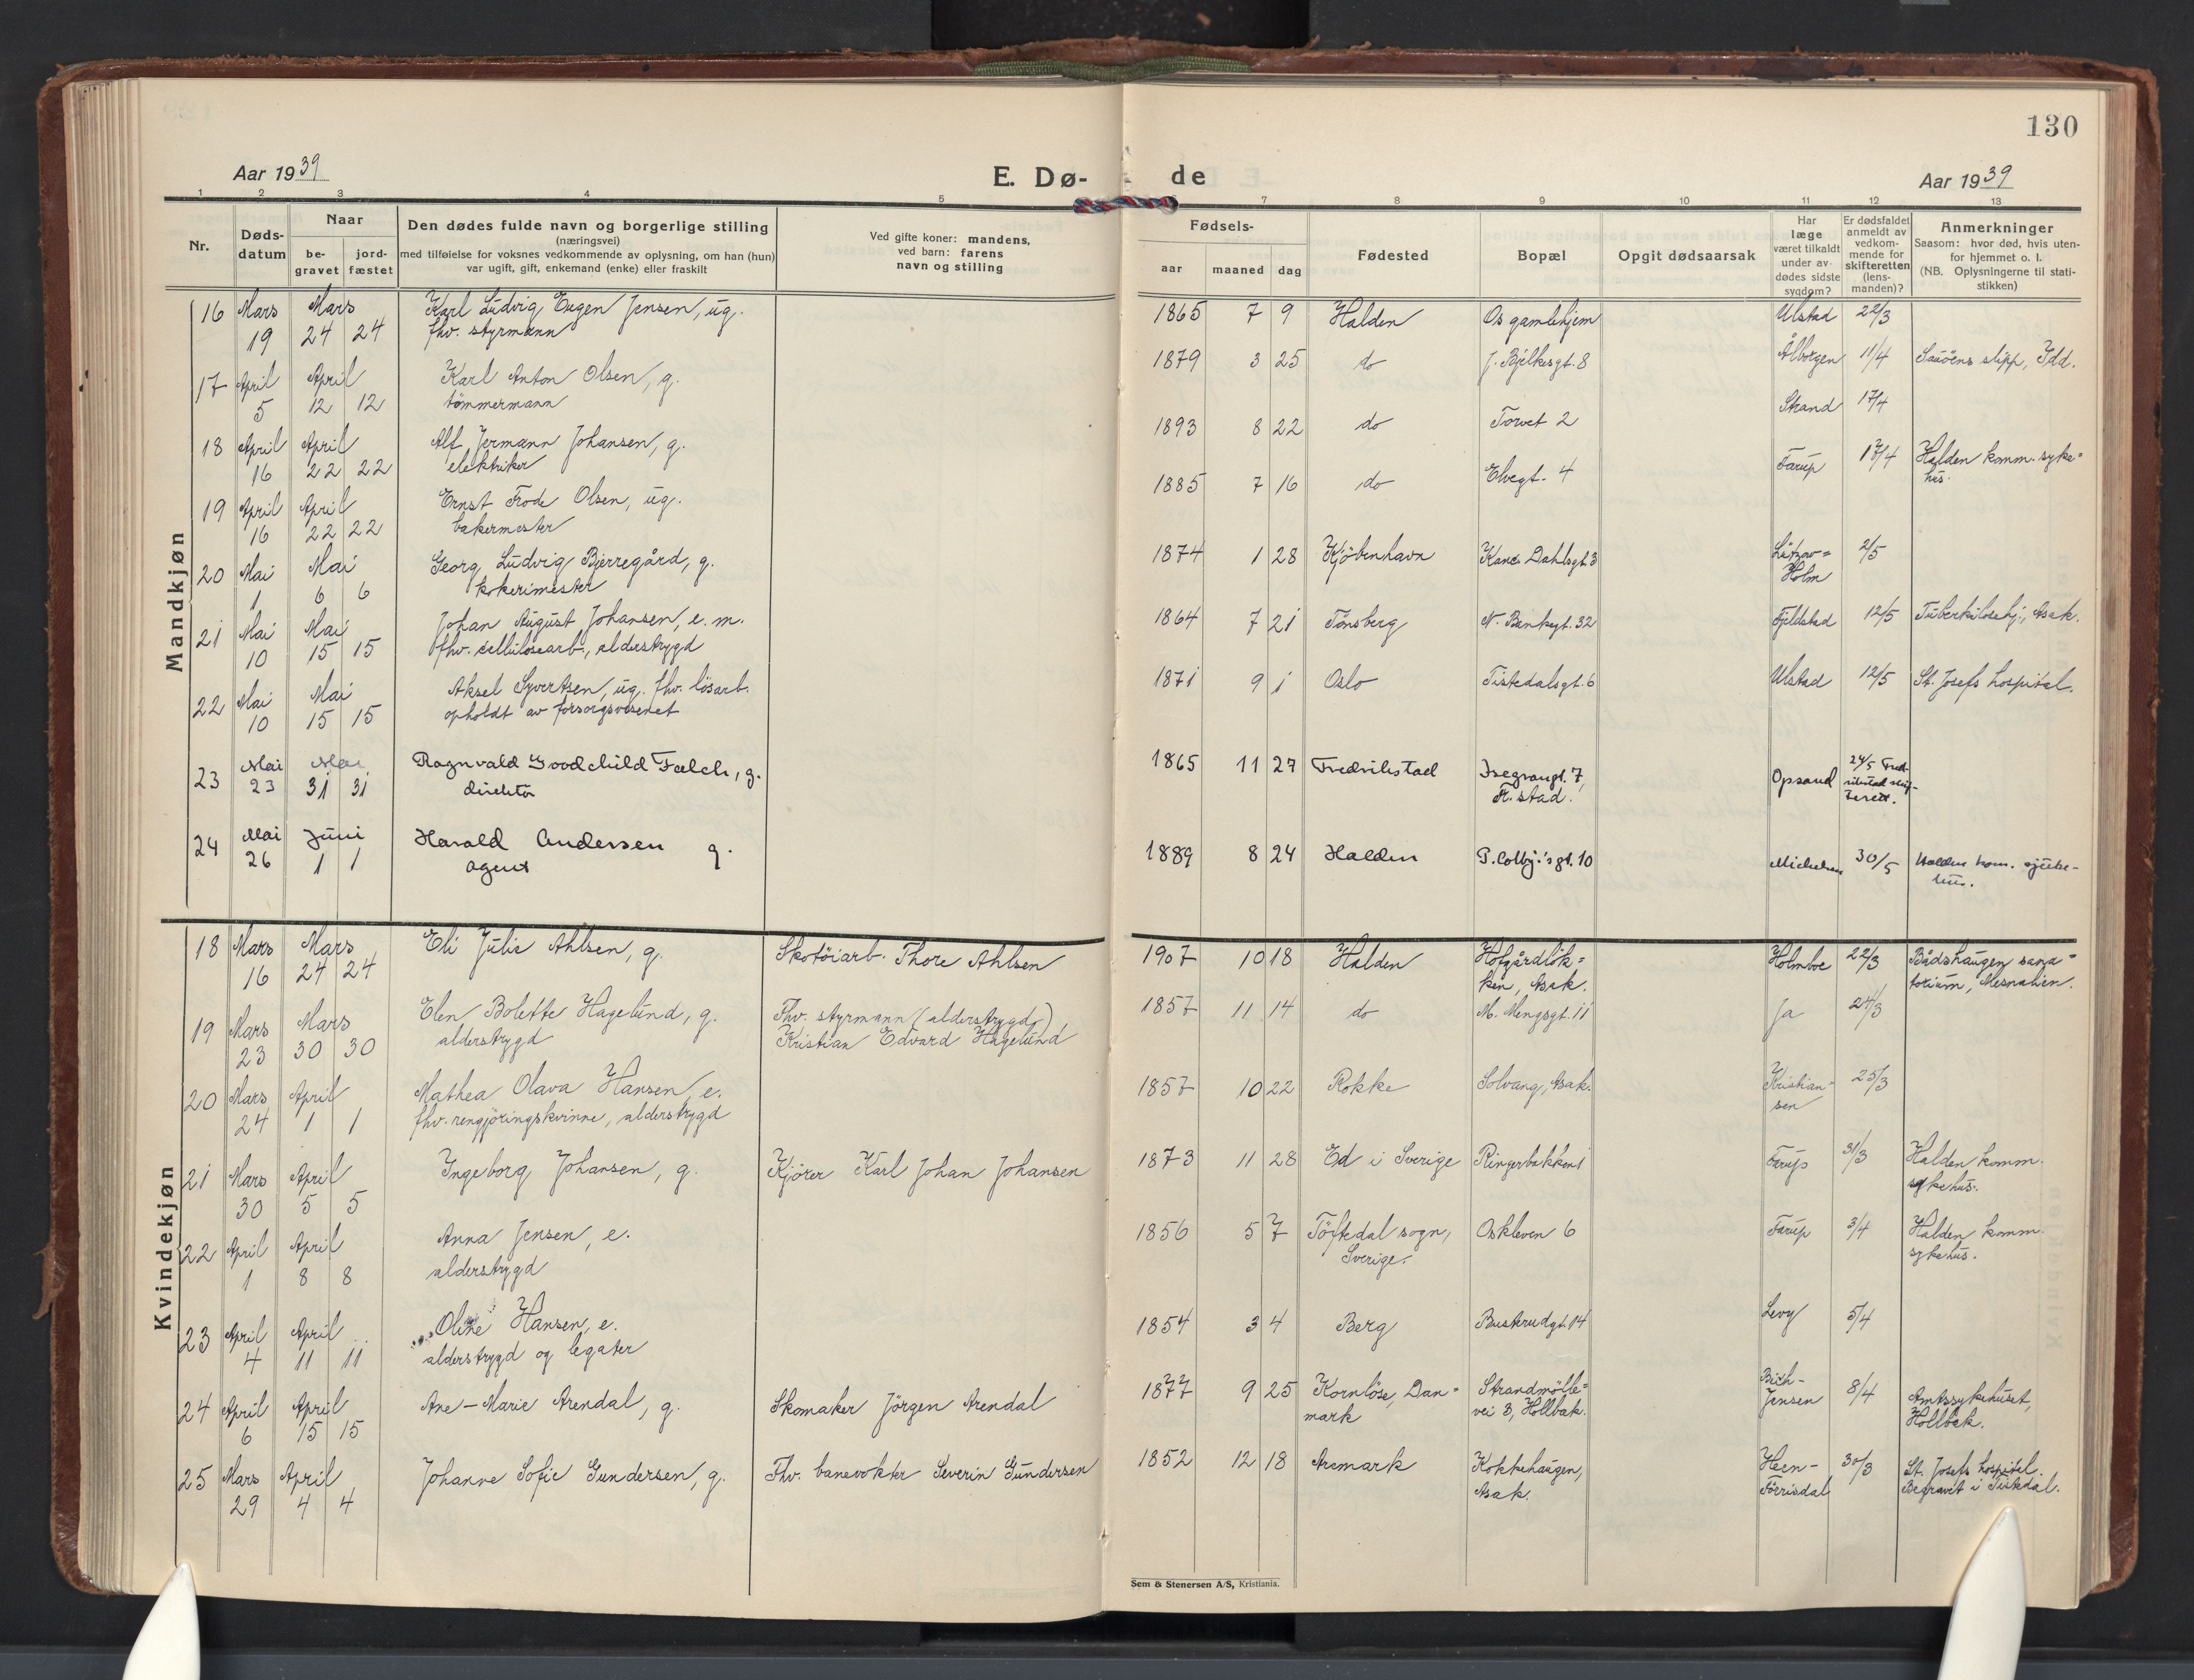 130
Aar 1939
E. Dø-
de
Aar 1939
1 2 3 4 5 7 8 9 10 11 12 13
Nr.
Døds-
datum
Naar
be-
gravet
jord-
fæstet
Den dødes fulde navn og borgerlige stilling
(næringsvei)
med tilføielse for voksnes vedkommende av oplysning, om han (hun)
var ugift, gift, enkemand (enke) eller fraskilt
Ved gifte koner: mandens,
ved barn: farens
navn og stilling
Fødsels-
aar maaned dag
Fødested
Bopæl
Opgit dødsaarsak
Har
læge
været tilkaldt
under av-
dødes sidste
sygdom?
Er dødsfaldet
anmeldt av
vedkom-
mende for
skifteretten
(lens-
manden)?
Anmerkninger
Saasom: hvor død, hvis uten-
for hjemmet o. l.
(NB. Oplysningerne til stati-
stikken)
Mandkjøn
16 Mars Mars Karl Ludvig Eugen Jensen, ug. 1865 7 9 Halden Os gamlehjem Ulstad 22/3
19 24 24 fhv. styrmann
17 April April Karl Anton Olsen, g. 1879 3 25 do J. Bjelkesgt. 8 Ålborgen 11/4 Sauöens slipp, Idd.
5 12 12 tömmermann
18 April April Alf Jermann Johansen, g. 1893 8 22 do Torvet 2 Strand 17/4
16 22 22 elektriker
19 April April Ernst Frode Olsen, ug. 1885 7 16 do Elvegt. 4 Farup 17/4 Halden komm. syke=
hus.
16 22 22 bakermester
20 Mai Mai Georg Ludvig Bjerregård, g. 1874 1 28 Kjöbenhavn Kanc. Dahlsgt. 3 Lützow=
Holm 2/5
1 6 6 kokerimester
21 Mai Mai Johan August Johansen, e. m. 1864 7 21 Tönsberg N. Bankegt. 32 Fjeldstad 12/5 Tuberkulosehj., Asak.
10 15 15 fhv. cellulosearb., alderstrygd
22 Mai Mai Aksel Syvertsen, ug. fhv. lösarb. 1871 9 1 Oslo Tistedalsgt. 6 Ulstad 12/5 St. Josefs hospital.
10 15 15 opholdt av forsorgsvesenet
23 Mai Mai Ragnvald Goodchild Falch, g. 1865 11 27 Fredrikstad Isegrangt. 7,
Fr. stad. Opsand 24/5 Fred-
rikstad skif-
terett.
23 31 31 direktör
24 Mai Juni Harald Andersen g. 1889 8 24 Halden P. Colbj.'sgt. 10 Michelsen 30/5 Halden kom. sjuke-
hus.
26 1 1 agent
Kvindekjøn
18 Mars Mars Eli Julie Ahlsen, g. Skotöiarb. Thore Ahlsen 1907 10 18 Halden Hofgårdlök=
ken, Asak. Holmboe 22/3 Bådshaugen sana=
torium, Mesnalien.
16 24 24
19 Mars Mars Elen Bolette Hagelund, g. Fhv. styrmann (alderstrygd) 1857 11 14 do M. Mengsgt. 11 Ja 24/3
23 30 30 alderstrygd Kristian Edvard Hagelund
20 Mars April Mathea Olava Hansen, e. 1857 10 22 Rokke Solvang, Asak. Kristian=
sen 25/3
24 1 1 fhv. rengjöringskvinne, alderstrygd
21 Mars April Ingeborg Johansen, g. Kjörer Karl Johan Johansen 1873 11 28 Ed i Sverige Ringerbakken 1 Farup 31/3 Halden komm.
sykehus.
30 5 5
22 April April Anna Jensen, e. 1856 5 7 Töftedal sogn,
Sverige. Oskleven 6 Farup 3/4 Halden komm.
sykehus.
1 8 8 alderstrygd
23 April April Oline Hansen, e. 1854 3 4 Berg Buskrudgt. 14 Levy 5/4
4 11 11 alderstrygd og legater
24 April April Ane-Marie Arendal, g. Skomaker Jörgen Arendal 1877 9 25 Kornlöse, Dan=
mark Strandmölle=
vei 3, Hollbæk. Brich-
Jensen 8/4 Amtssykehuset,
Hollbek.
6 15 15
25 Mars April Johanne Sofie Gundersen, g. Fhv. banevokter Severin Gundersen 1852 12 18 Aremark Kokkehaugen,
Asak. Heen-
Förrisdal 30/3 St. Josefs hospital.
Begravet i Tistedal.
29 4 4
Sem & Stenersen A/S, Kristiania.